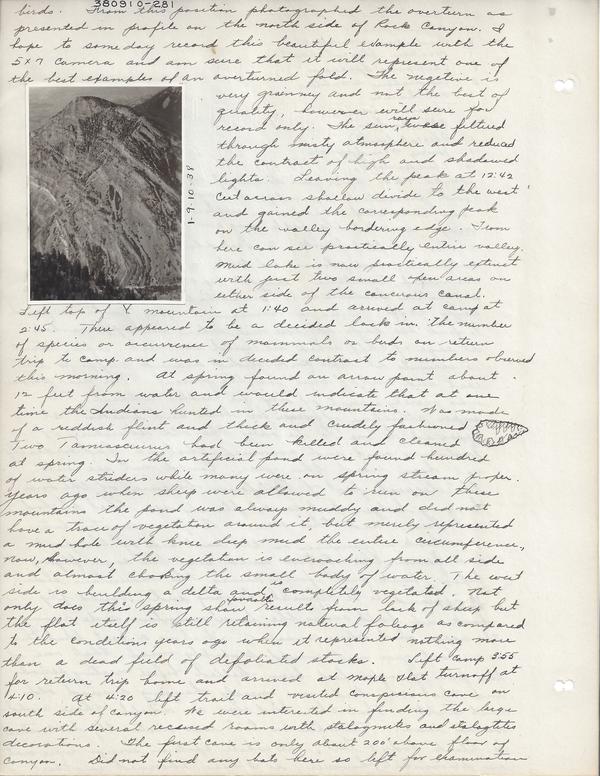 380910-281
birds. From this position photographed the overturn as
presented in profile on the north side of Rock Canyon. I
hope to some day record this beautiful example with the
5x7 camera and am sure that it will represent one of
the best examples of an overturned fold. The negetive is
very grainney and not the best of
quality, however will serve for
record only. The sun rays filtered
through misty atmosphere and reduced
the contrast of high and shadowed
lights. Leaving the peak at 12:42
Cut across shallow divide to the west
and gained the corresponding peak
on the valley bordering edge. From
here can see practically entire valley.
Mud lake is now practically extinct
with just two small open areas on
either side of the canal.
1-9-10-38
Left top of Y mountain at 1:40 and arrived at camp at
2:45. There appeared to be a decided lack in the number
of species or occurrence of mammals or birds on return
trip to camp and was in decided contrast to numbers observed
this morning. At spring found an arrow point about
12 feet from water and would indicate that at one
time the Indians hunted in these mountains. Was made
of a reddish flint and thick and crudely fashioned
Two Tamiasciurus had been killed and cleaned
at spring. In the artificial pond were found hundred
of water striders while many were on spring stream proper.
years ago when sheep were allowed to run on these
mountains the pond was always muddy and did not
have a trace of vegetation around it, but merely represented
a mud hole with knee deep mud the entire circumference,
now, however, the vegetation is encroaching from all side
and almost choking the small body of water. The west
side is building a delta and is completely vegetated. Not
only does this spring show favorable results from lack of sheep but
the flat itself is still retaining natural foliage as compared
to the conditions years ago when it represented nothing more
than a dead field of defoliated stocks. Left camp 3:55
for return trip home and arrived at Maple Flat turnoff at
4:10. At 4:20 left trail and visited conspicious cave on
south side of canyon. We were interested in finding the large
cave with several recessed rooms with stalagmites and stalagtites
decorations. The first cave is only about 200' above floor of
canyon. Did not find any bats here so left for examination